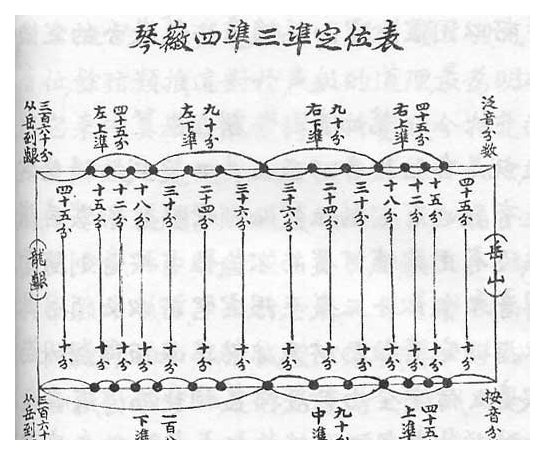 琴徽四準三準定位表
从岳到齦
三百六十分
左上準
四十五分
左下準
九十分
右下準
九十分
右上準
四十五分
泛音分数
四十五分
十五分
十二分
十八分
三十分
二十四分
三十六分
三十六分
二十四分
三十分
十八分
十二分
十五分
四十五分
(龍齦)
(岳山)
十分
十分
十分
十分
十分
十分
十分
十分
十分
十分
十分
十分
十分
十分
从岳到
三百六十
下準
一百八
中準
九十分
上準
四十五
按音分